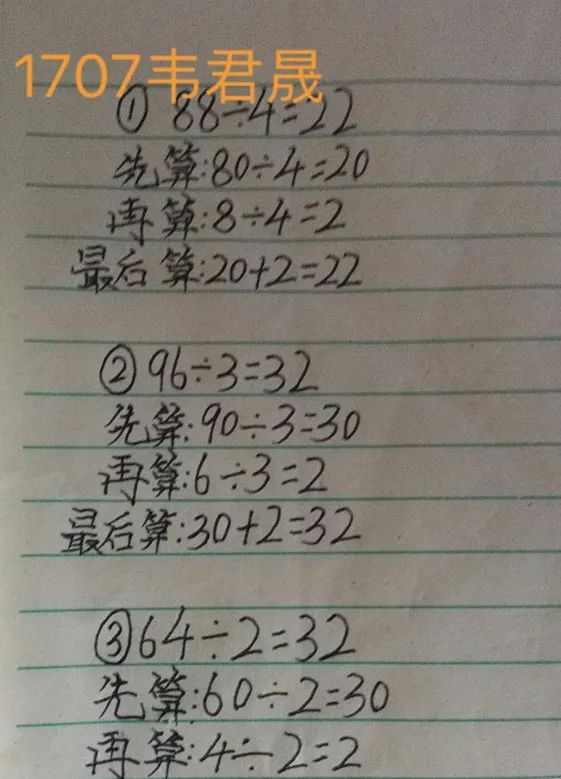 1707韦君晟
① 88÷4=22
先算:80÷4=20
再算:8÷4=2
最后算:20+2=22
② 96÷3=32
先算:90÷3=30
再算:6÷3=2
最后算:30+2=32
③ 64÷2=32
先算:60÷2=30
再算:4÷2=2